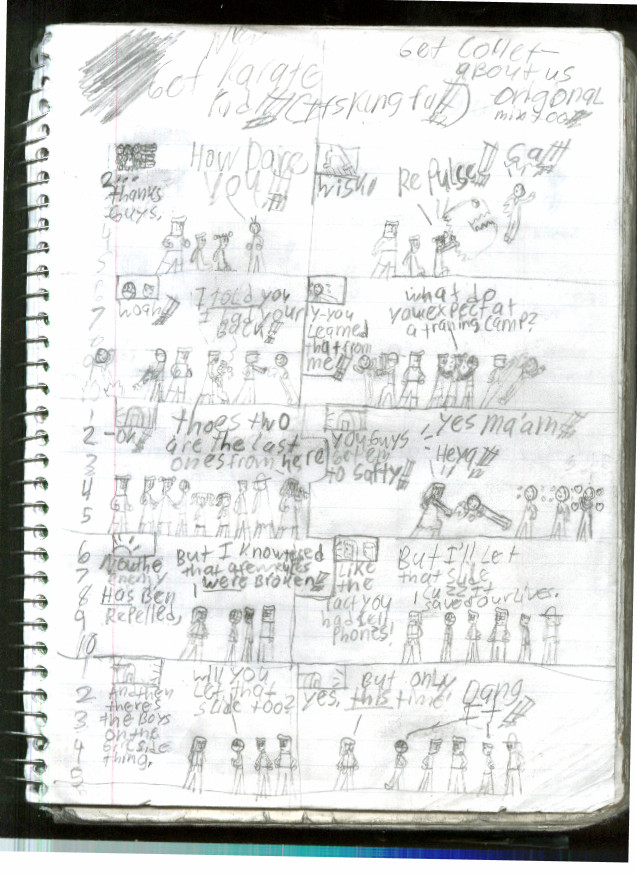 Now
Got Karate
Kid!!! (It's Kung fu!!)
Get Collet
about us
origonal
mix 700!!!
2...
thanks
Guys,
How Dare
You!!!
Wisk!
RePulse!!
Gah!!
4
5
6
7
8
9
0
Woah!!
I told you
I had your
Back!!!
y-you
Learned
that from
me!!
what do
you expect at
a traning camp?
1
2
3
4
5
-ok!!
thoes two
are the last
ones from here
You guys
Get em
to Safty!!
Yes ma'am!!
Heya!!
6
7
8
9
10
Now the
enemy
Has Ben
Repelled,
But I Know
that a few rules
were Broken!!!
Like
the
fact you
had cell
Phones!
But I'll Let
that slide
cuzz it
saved our lives.
1
2
3
4
5
6
And then
there's
the Boys
on the
Girl side
thing.
Will you
Let that
slide too?
Yes,
But only
this time!
Dang
It!!